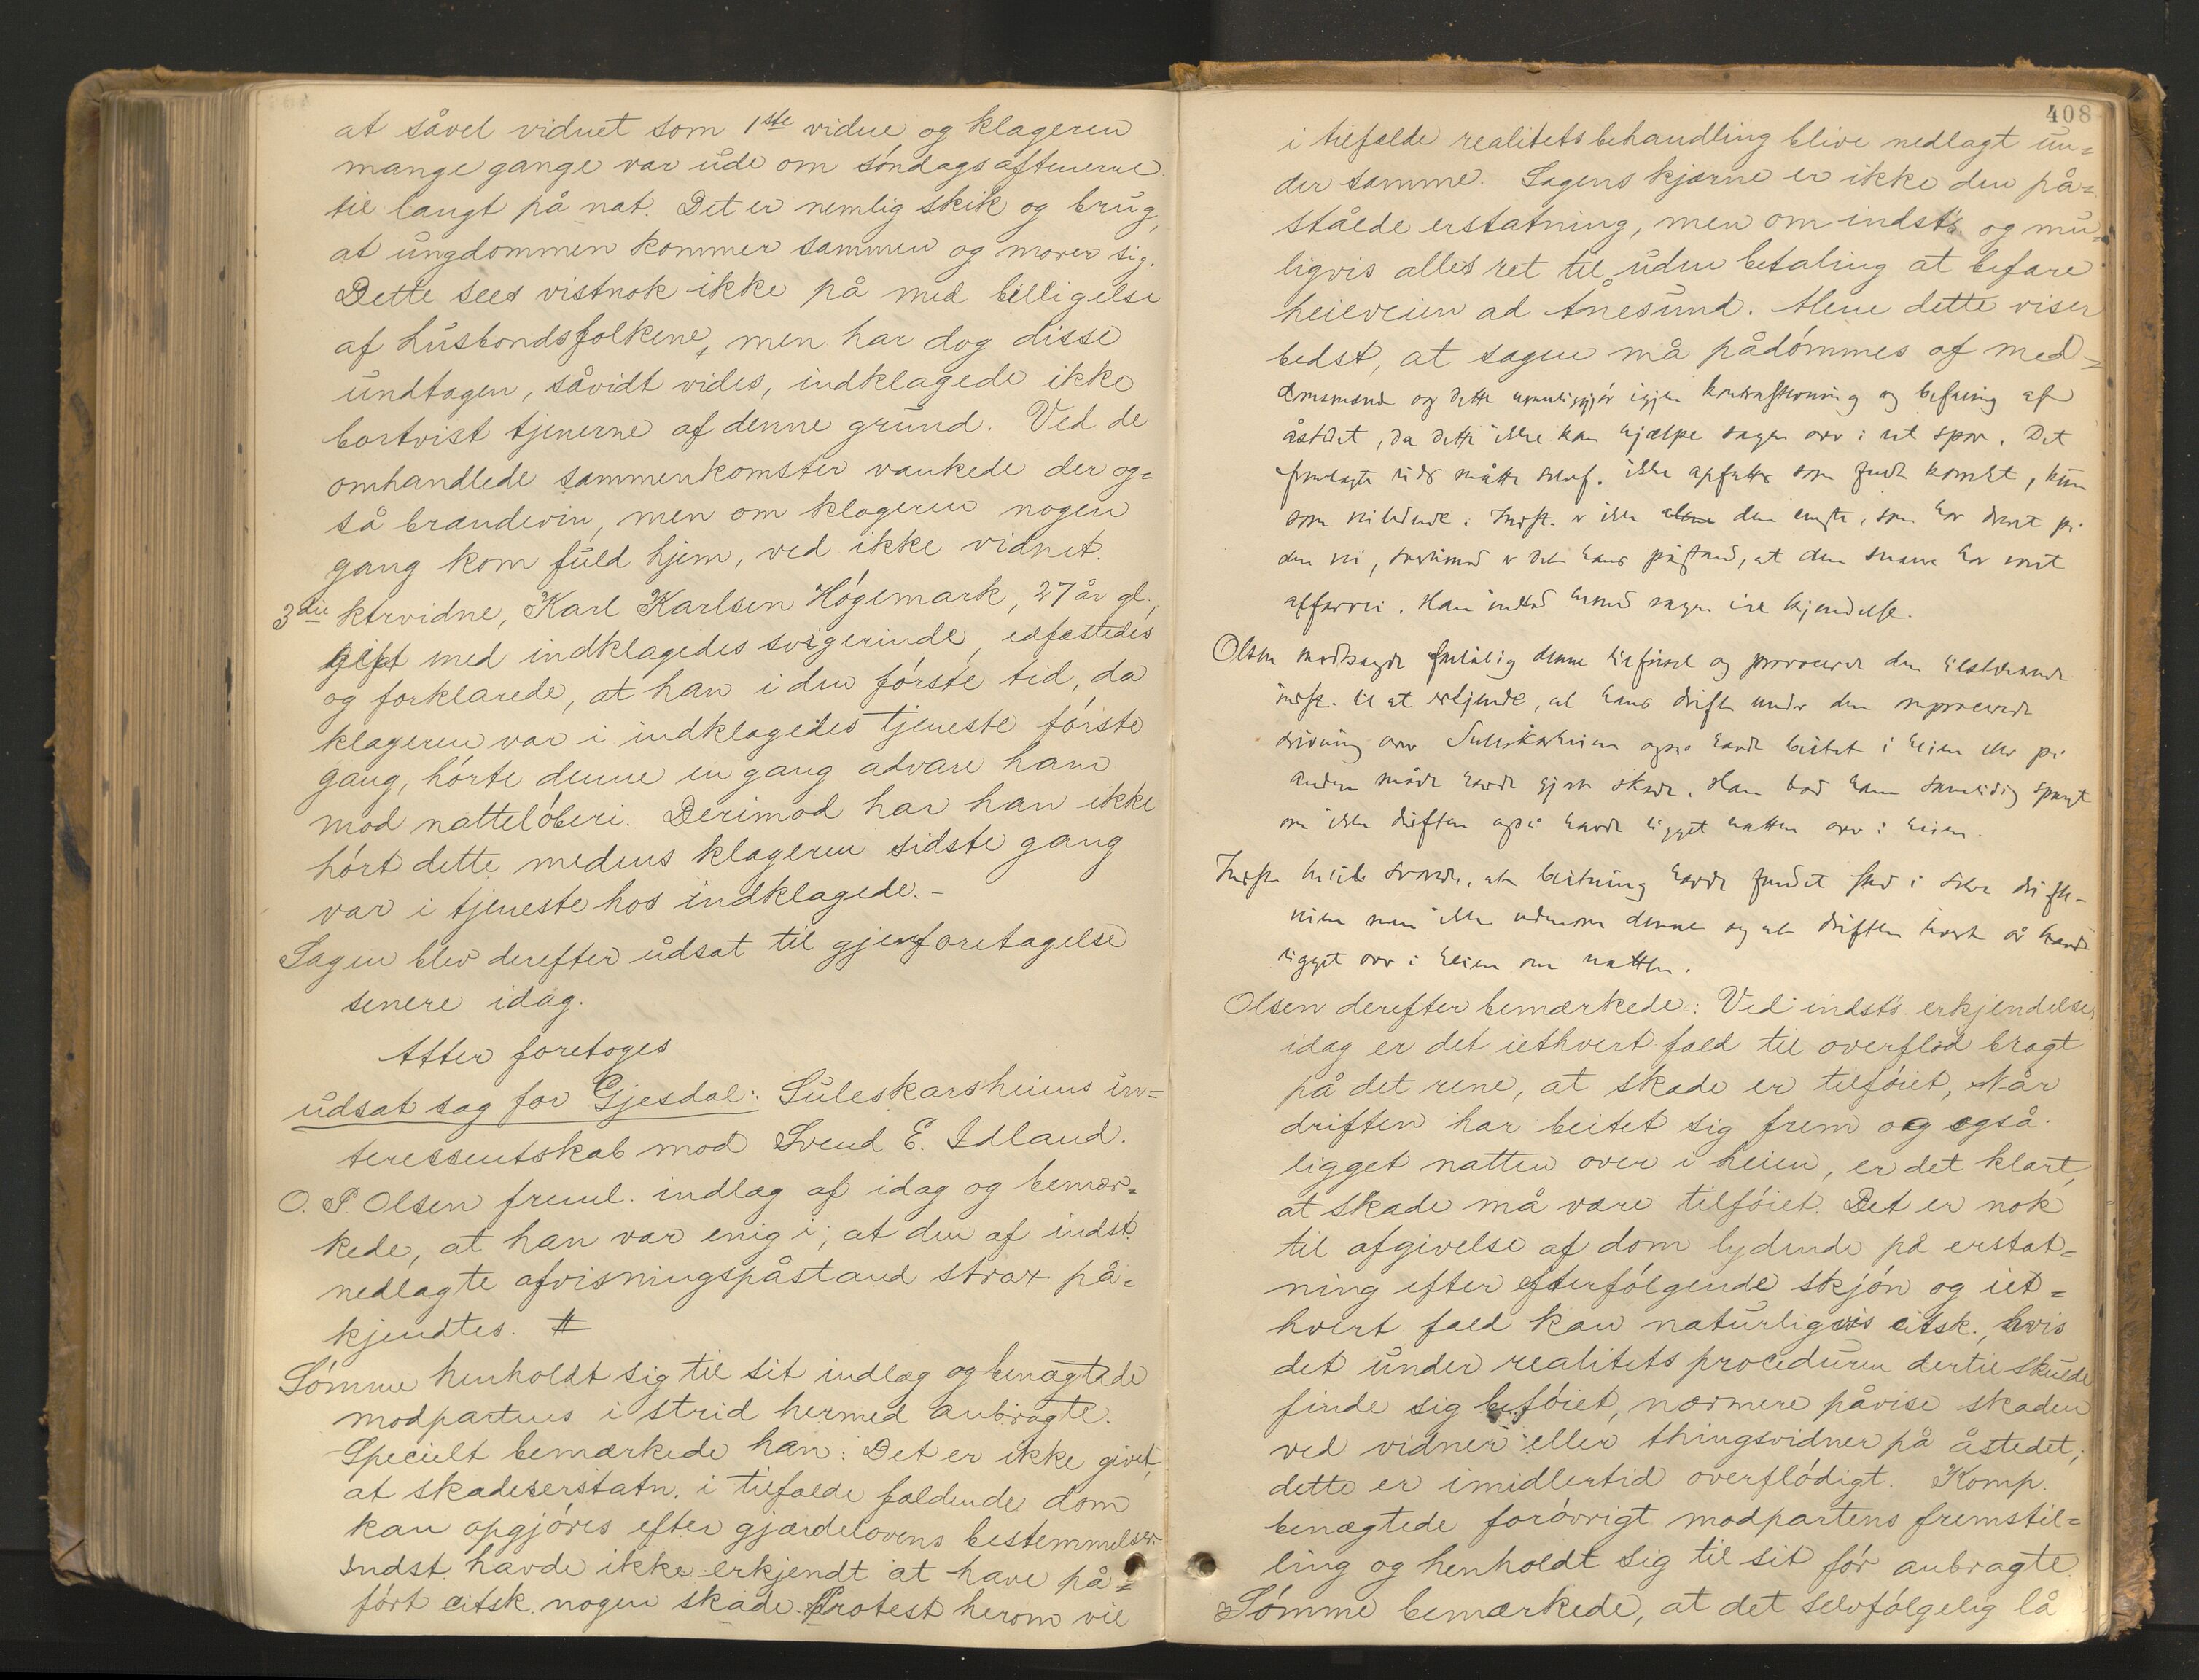 at såvel vidnet som 1ste vidne og klageren
mange gange var ude om søndagsaftenerne
til langt på nat. Det er nemlig skik og brug,
at ungdommen kommer sammen og morer sig.
Dette sees vistnok ikke på med billigelse
af husbondsfolkene, men har dog disse
undtagen, såvidt vides, indklagede ikke
bortvist tjenerne af denne grund. Ved de
omhandlede sammenkomster vankede der og=
så brændevin, men om klageren nogen
gang kom fuld hjem, ved ikke vidnet.
3die ktrvidne, Karl Karlsen Høgemark, 27 år gl.,
gift med indklagedes svigerinde, edfæstedes
og forklarede, at han i den første tid, da
klageren var i indklagedes tjeneste første
gang, hørte denne en gang advare ham
mod natteløberi. Derimod har han ikke
hørt dette medens klageren sidste gang
var i tjeneste hos indklagede.-
Sagen blev derefter udsat til gjenforetagelse
senere idag.
Atter foretoges
udsat sag for Gjesdal: Suleskarsheiens in=
teressentskab mod Svend E. Idland.
O. P. Olsen freml. indlæg af idag og bemær=
kede, at han var enig i, at den af indst.
nedlagte afvisningspåstand strax på=
kjendtes. #
Sømme henholdt sig til sit indlæg og benægtede
modpartens i strid hermed anbragte.
Specielt bemærkede han: Det er ikke givet,
at skadeserstatn. i tilfælde fældende dom
kan opgjøres efter gjærdelovens bestemmelser.
Indst. havde ikke erkjendt at have på=
ført citsk. nogen skade. Protest herom vil
408
i tilfælde realitetsbehandling blive nedlagt un=
der samme. Sagens kjærne er ikke den på=
ståede erstatning, men om indst's og mu=
ligvis alles ret til uden betaling at befare
heieveien ad Ånesund. Mene dette viser
bedst, at sagen må pådømmes af med=
domsmænd og dette umuliggjør igjen kontraførening og befaring af
åstedet, da dette ikke kan hjælpe sagen over i ret spor. Det
fremlagte måtte ikke opfattes som, kun
som veiledende. Indst. er ikke alene den eneste, som har drevet på
den vei, derimod er det hans påstand, at den samme har været
alfarvei. Han indlod hermed sagen til kjendelse.
Olsen modsagde foreløbig denne tilførsel og provocerede den tilstedeværende
indst. til at erkjende, at hans drift under den
drivning over Suleskarheien også havde beitet i heien eller på
anden måde havde gjort skade. Han bad ham samtidig spurgt
om ikke driften også havde ligget natten over i heien.
Indst. hertil svarede, at beitning havde fundet sted i selve drifte-
veien men ikke udenom denne og at driften hvert år havde
ligget over i heien om natten.
Olsen derefter bemærkede: Ved indst's erkjendelse
idag er det iethvert fald til overflod bragt
på det rene, at skade er tilføiet, Når
driften har beitet sig frem og også
ligget natten over i heien, er det klart,
at skade må være tilføiet. Det er nok
til afgivelse af dom lydende på erstat=
ning efter efterfølgende skjøn og iet=
hvert fald kan naturligvis citsk., hvis
det under realitetsproceduren dertil skulde
finde sig beføiet, nærmere påvise skaden
ved vidner eller thingsvidner på åstedet;
dette er imidlertid overflødigt. Komp.
benægtede forøvrigt modpartens fremstil=
ling og henholdt sig til sit før anbragte.
Sømme bemærkede, at det selvfølgelig lå